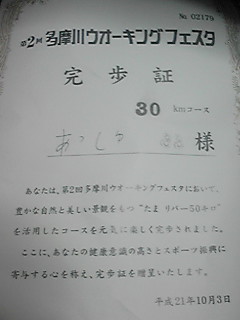 No. 02179
第2回 多摩川ウオーキングフェスタ
完歩証
30 kmコース
あつしな 様
あなたは、第2回多摩川ウオーキングフェスタにおいて、
豊かな自然と美しい景観をもつ“たま リバー50キロ”
を活用したコースを元気に楽しく完歩されました。
ここに、あなたの健康意識の高さとスポーツ振興に
寄与する心を称え、完歩証を贈呈いたします。
平成21年10月3日